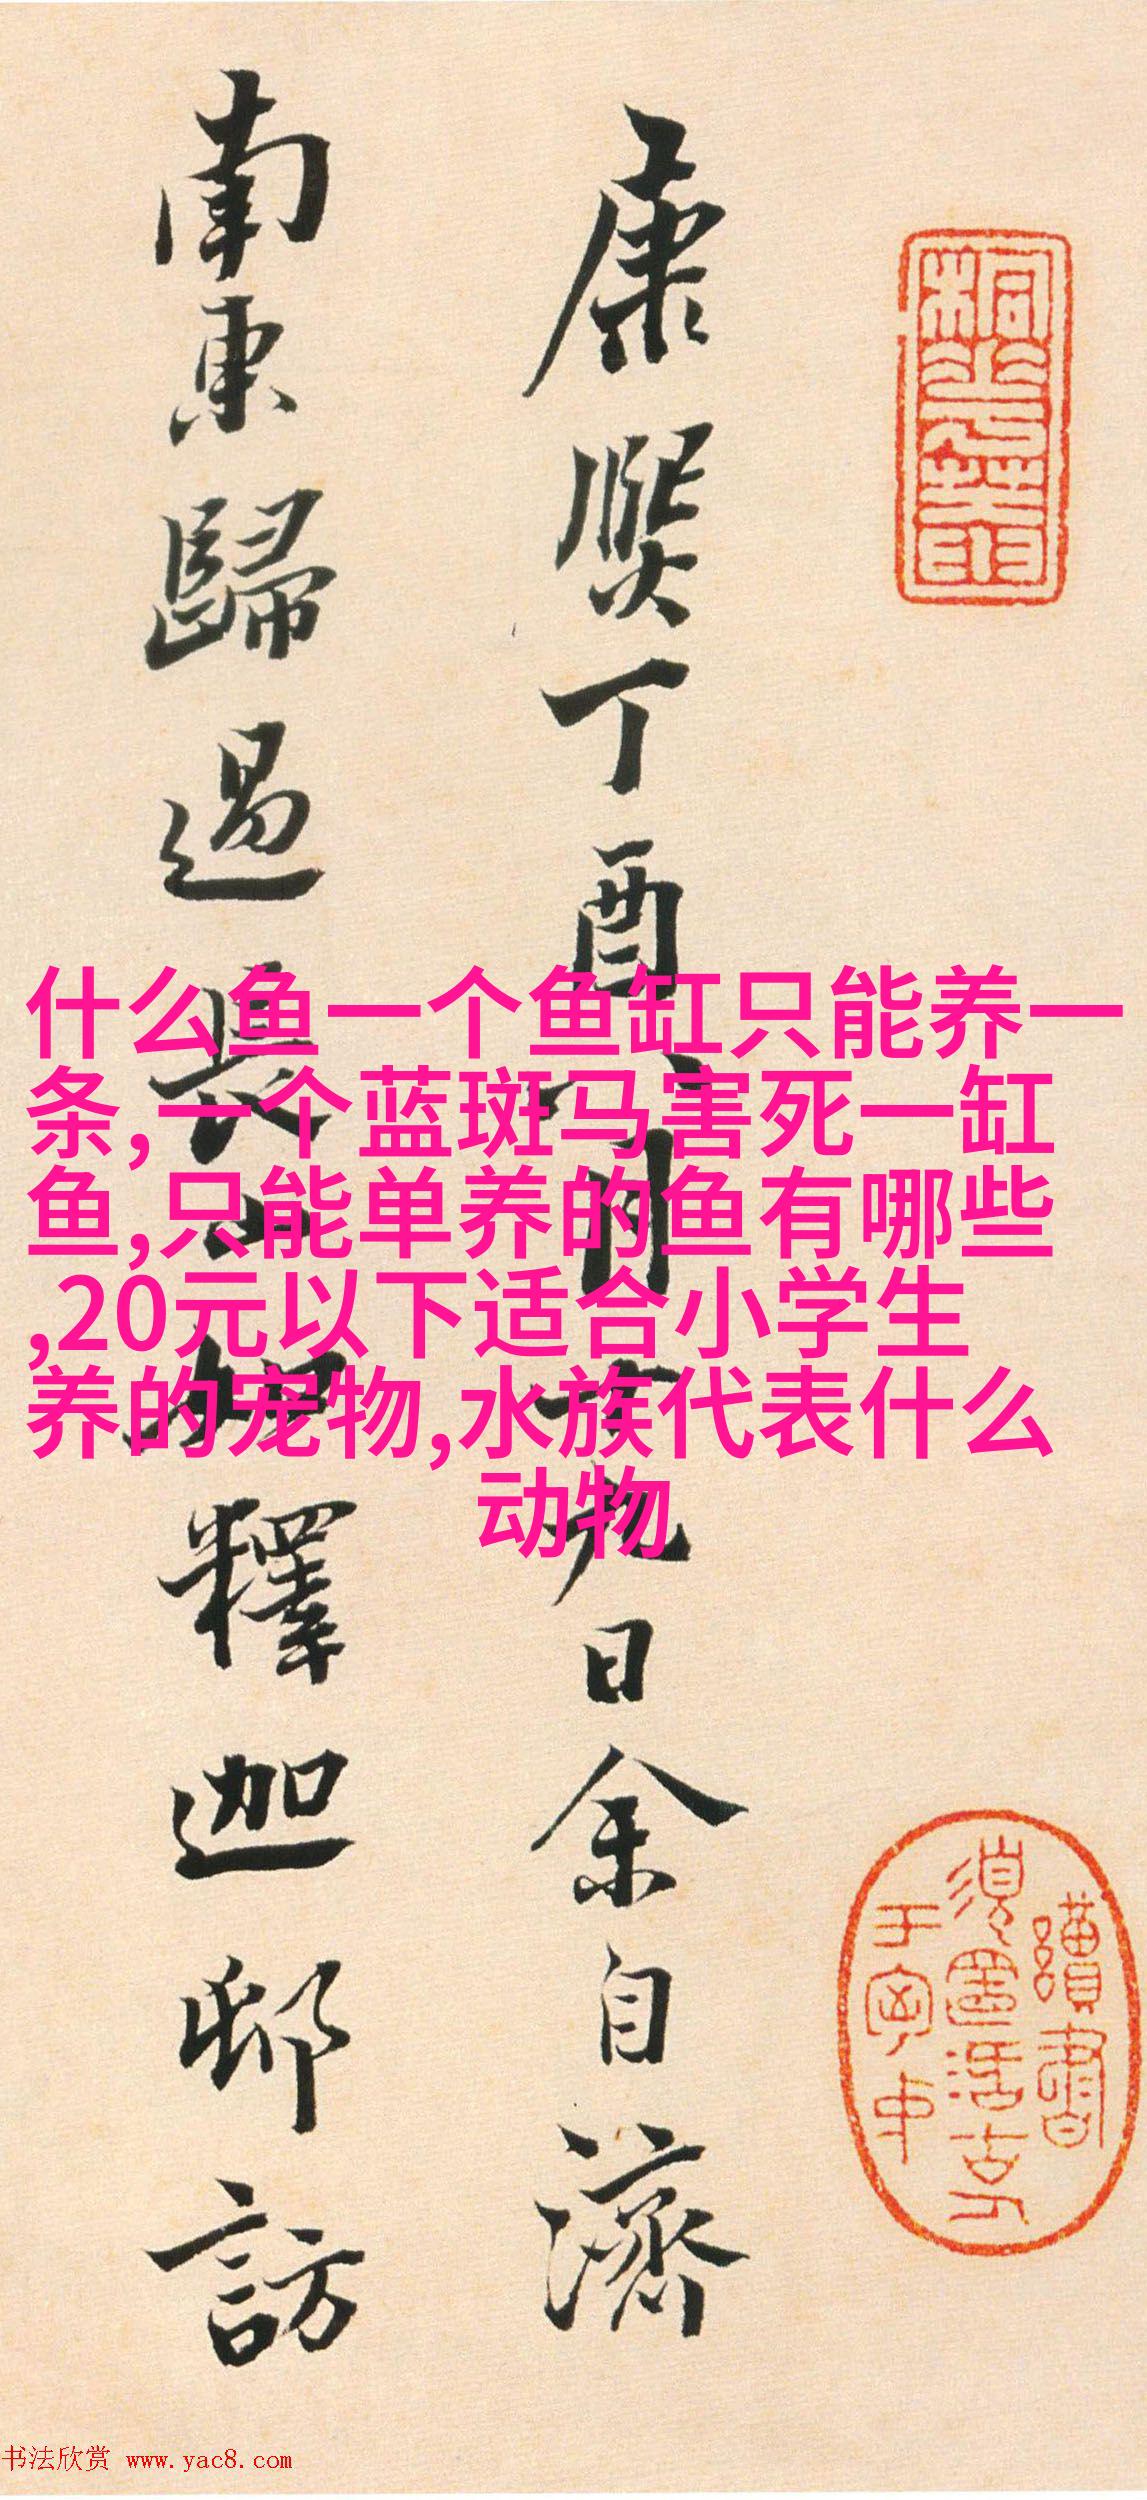 康熙丁酉八月十九日余自濟
南東歸過長山與釋迦邨訪
什么鱼一个鱼缸只能养一
条,一个蓝斑马害死一缸
鱼,只能单养的鱼有哪些
,20元以下适合小学生
养的宠物,水族代表什么
动物
书法欣赏 www.yac8.com